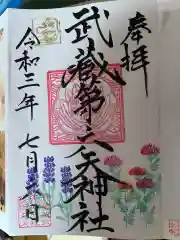 奉拝
武蔵第六天神社
令和三年
七月